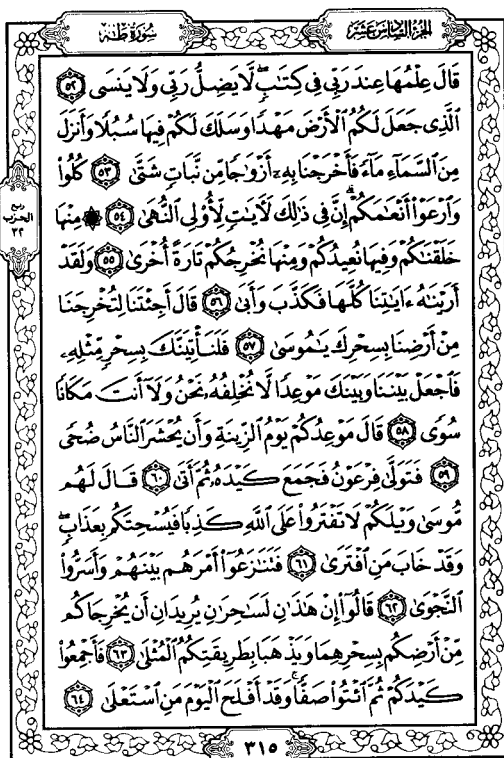 سُورَةُ طه
الجُزْءُ السَّادِسَ عَشَرَ
قَالَ عِلْمُهَا عِندَ رَبِّى فِى كِتَٰبٍ ۖ لَّا يَضِلُّ رَبِّى وَلَا يَنسَى ٥٢
ٱلَّذِى جَعَلَ لَكُمُ ٱلْأَرْضَ مَهْدًا وَسَلَكَ لَكُمْ فِيهَا سُبُلًا وَأَنزَلَ
مِنَ ٱلسَّمَآءِ مَآءً فَأَخْرَجْنَا بِهِۦٓ أَزْوَٰجًا مِّن نَّبَاتٍ شَتَّىٰ ٥٣ كُلُوا۟
وَٱرْعَوْا۟ أَنْعَٰمَكُمْ ۗ إِنَّ فِى ذَٰلِكَ لَءَايَٰتٍ لِّأُو۟لِى ٱلنُّهَىٰ ٥٤ ۞ مِنْهَا
خَلَقْنَٰكُمْ وَفِيهَا نُعِيدُكُمْ وَمِنْهَا نُخْرِجُكُمْ تَارَةً أُخْرَىٰ ٥٥ وَلَقَدْ
أَرَيْنَٰهُ ءَايَٰتِنَا كُلَّهَا فَكَذَّبَ وَأَبَىٰ ٥٦ قَالَ أَجِئْتَنَا لِتُخْرِجَنَا
مِنْ أَرْضِنَا بِسِحْرِكَ يَٰمُوسَىٰ ٥٧ فَلَنَأْتِيَنَّكَ بِسِحْرٍ مِّثْلِهِۦ
فَٱجْعَلْ بَيْنَنَا وَبَيْنَكَ مَوْعِدًا لَّا نُخْلِفُهُۥ نَحْنُ وَلَآ أَنتَ مَكَانًا
سُوًى ٥٨ قَالَ مَوْعِدُكُمْ يَوْمُ ٱلزِّينَةِ وَأَن يُحْشَرَ ٱلنَّاسُ ضُحًى
٥٩ فَتَوَلَّىٰ فِرْعَوْنُ فَجَمَعَ كَيْدَهُۥ ثُمَّ أَتَىٰ ٦٠ قَالَ لَهُم
مُّوسَىٰ وَيْلَكُمْ لَا تَفْتَرُوا۟ عَلَى ٱللَّهِ كَذِبًا فَيُسْحِتَكُم بِعَذَابٍ ۖ
وَقَدْ خَابَ مَنِ ٱفْتَرَىٰ ٦١ فَتَنَٰزَعُوٓا۟ أَمْرَهُم بَيْنَهُمْ وَأَسَرُّوا۟
ٱلنَّجْوَىٰ ٦٢ قَالُوٓا۟ إِنْ هَٰذَٰنِ لَسَٰحِرَٰنِ يُرِيدَانِ أَن يُخْرِجَاكُم
مِّنْ أَرْضِكُم بِسِحْرِهِمَا وَيَذْهَبَا بِطَرِيقَتِكُمُ ٱلْمُثْلَىٰ ٦٣ فَأَجْمِعُوا۟
كَيْدَكُمْ ثُمَّ ٱئْتُوا۟ صَفًّا ۚ وَقَدْ أَفْلَحَ ٱلْيَوْمَ مَنِ ٱسْتَعْلَىٰ ٦٤
ربع
الحزب
٣٢
٣١٥